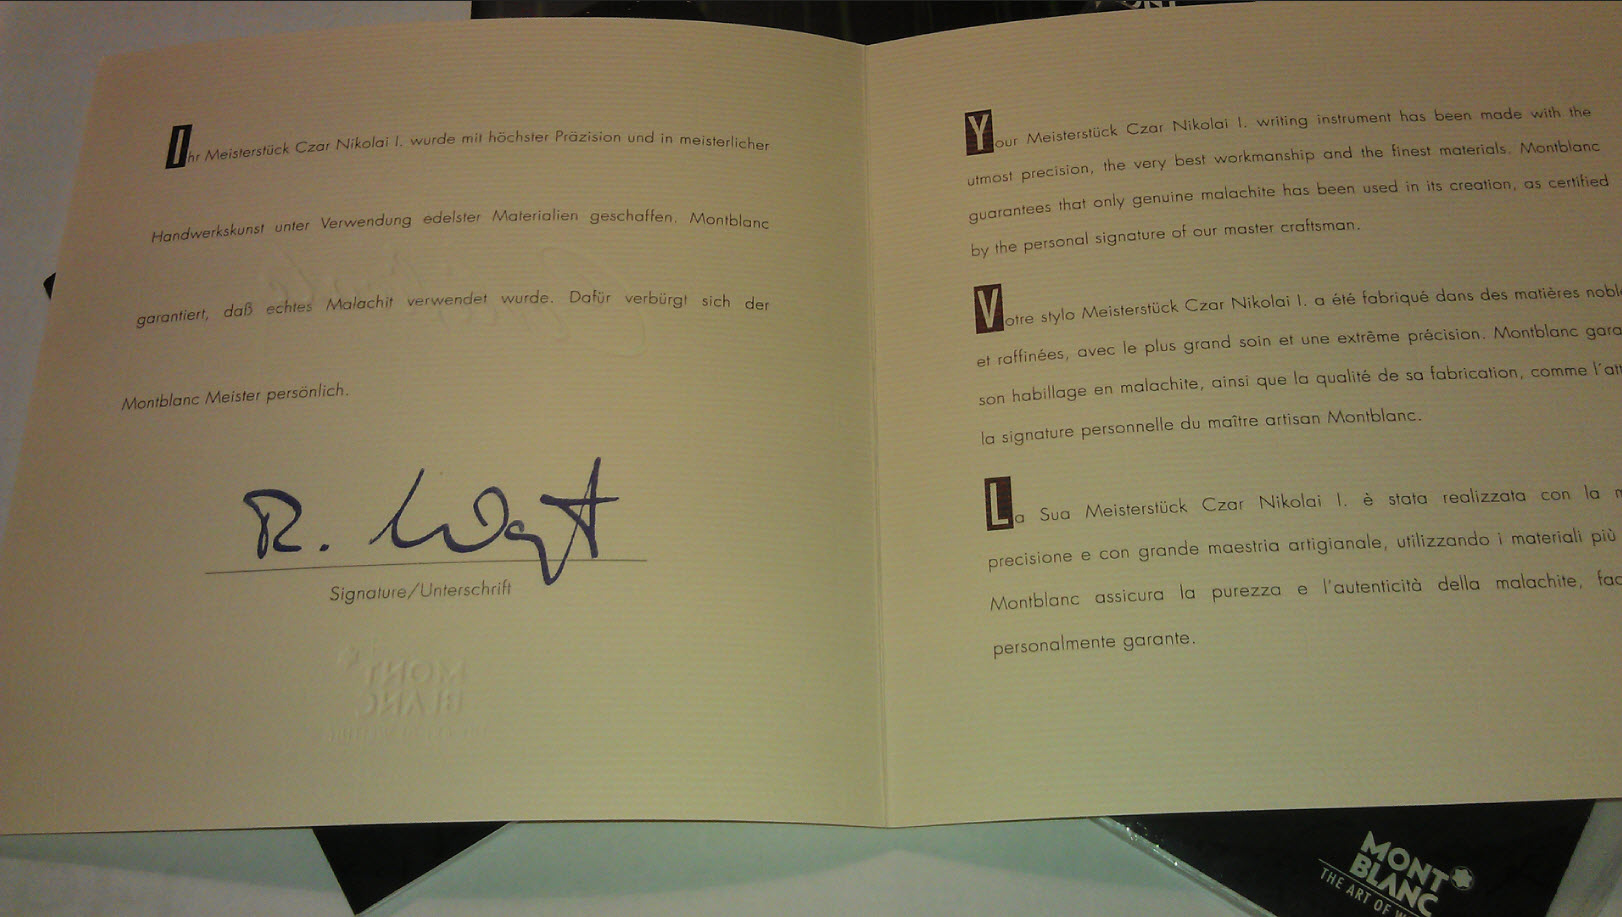 Ihr Meisterstück Czar Nikolai I. wurde mit höchster Präzision und in meisterlicher
Handwerkskunst unter Verwendung edelster Materialien geschaffen. Montblanc
garantiert, daß echtes Malachit verwendet wurde. Dafür verbürgt sich der
Montblanc Meister persönlich.
R.
Signature/Unterschrift
MONT
BLANC
Your Meisterstück Czar Nikolai I. writing instrument has been made with the
utmost precision, the very best workmanship and the finest materials. Montblanc
guarantees that only genuine malachite has been used in its creation, as certified
by the personal signature of our master craftsman.
Votre stylo Meisterstück Czar Nikolai I. a été fabriqué dans des matières
et raffinées, avec le plus grand soin et une extrême précision. Montblanc
son habillage en malachite, ainsi que la qualité de sa fabrication, comme
la signature personnelle du maître artisan Montblanc.
La Sua Meisterstück Czar Nikolai I. è stata realizzata con la
precisione e con grande maestria artigianale, utilizzando i materiali più
Montblanc assicura la purezza e l'autenticità della malachite,
personalmente garante.
MONT
BLANC
THE ART OF